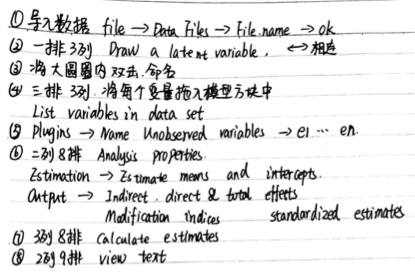 ① 导入数据 file → Data Files → File name → ok
② 一排3列 Draw a latent variable, ↔相连
③ 将大圆圈内双击.命名
④ 三排3列.将每个变量拖入模型方块中
List variables in data set
⑤ Plugins → Name Unobserved variables → e1 … en.
⑥ 二列8排 Analysis properties.
Estimation → Estimate means and intercepts.
Output → Indirect. direct & total effects
Modification indices standardized estimates
⑦ 3列8排 Calculate estimates
⑧ 2列9排 view text